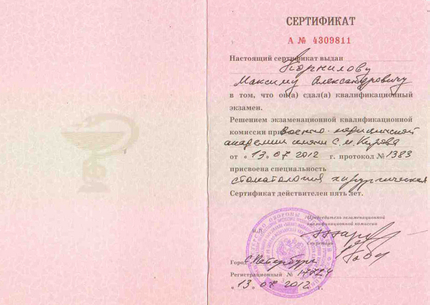 СЕРТИФИКАТ
А № 4309811
Настоящий сертификат выдан
Корнилову
Максиму Александровичу
в том, что он(а) сдал(а) квалификационный
экзамен.
Решением экзаменационной квалификационной
комиссии при Военно-медицинской
академии имени С.М. Кирова
от «13» 07 2012 г. протокол № 1383
присвоена специальность
стоматология хирургическая
Сертификат действителен пять лет.
Председатель экзаменационной
квалификационной комиссии
Секретарь
Город С.Петербург
Регистрационный № 17824
«13» 07 2012 г.